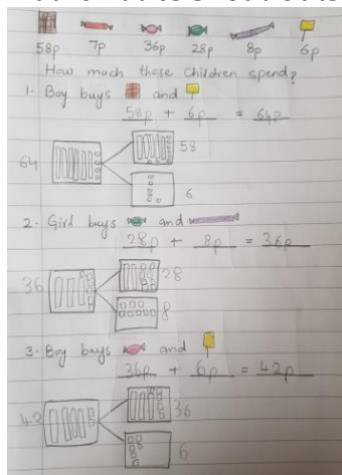 58p 7p 36p 28p 8p 6p
How much these children spend?
1- Boy buys and
58p + 6p = 64p
64 58
6
2- Girl buys and
28p + 8p = 36p
36 28
8
3- Boy buys and
36p + 6p = 42p
42 36
6